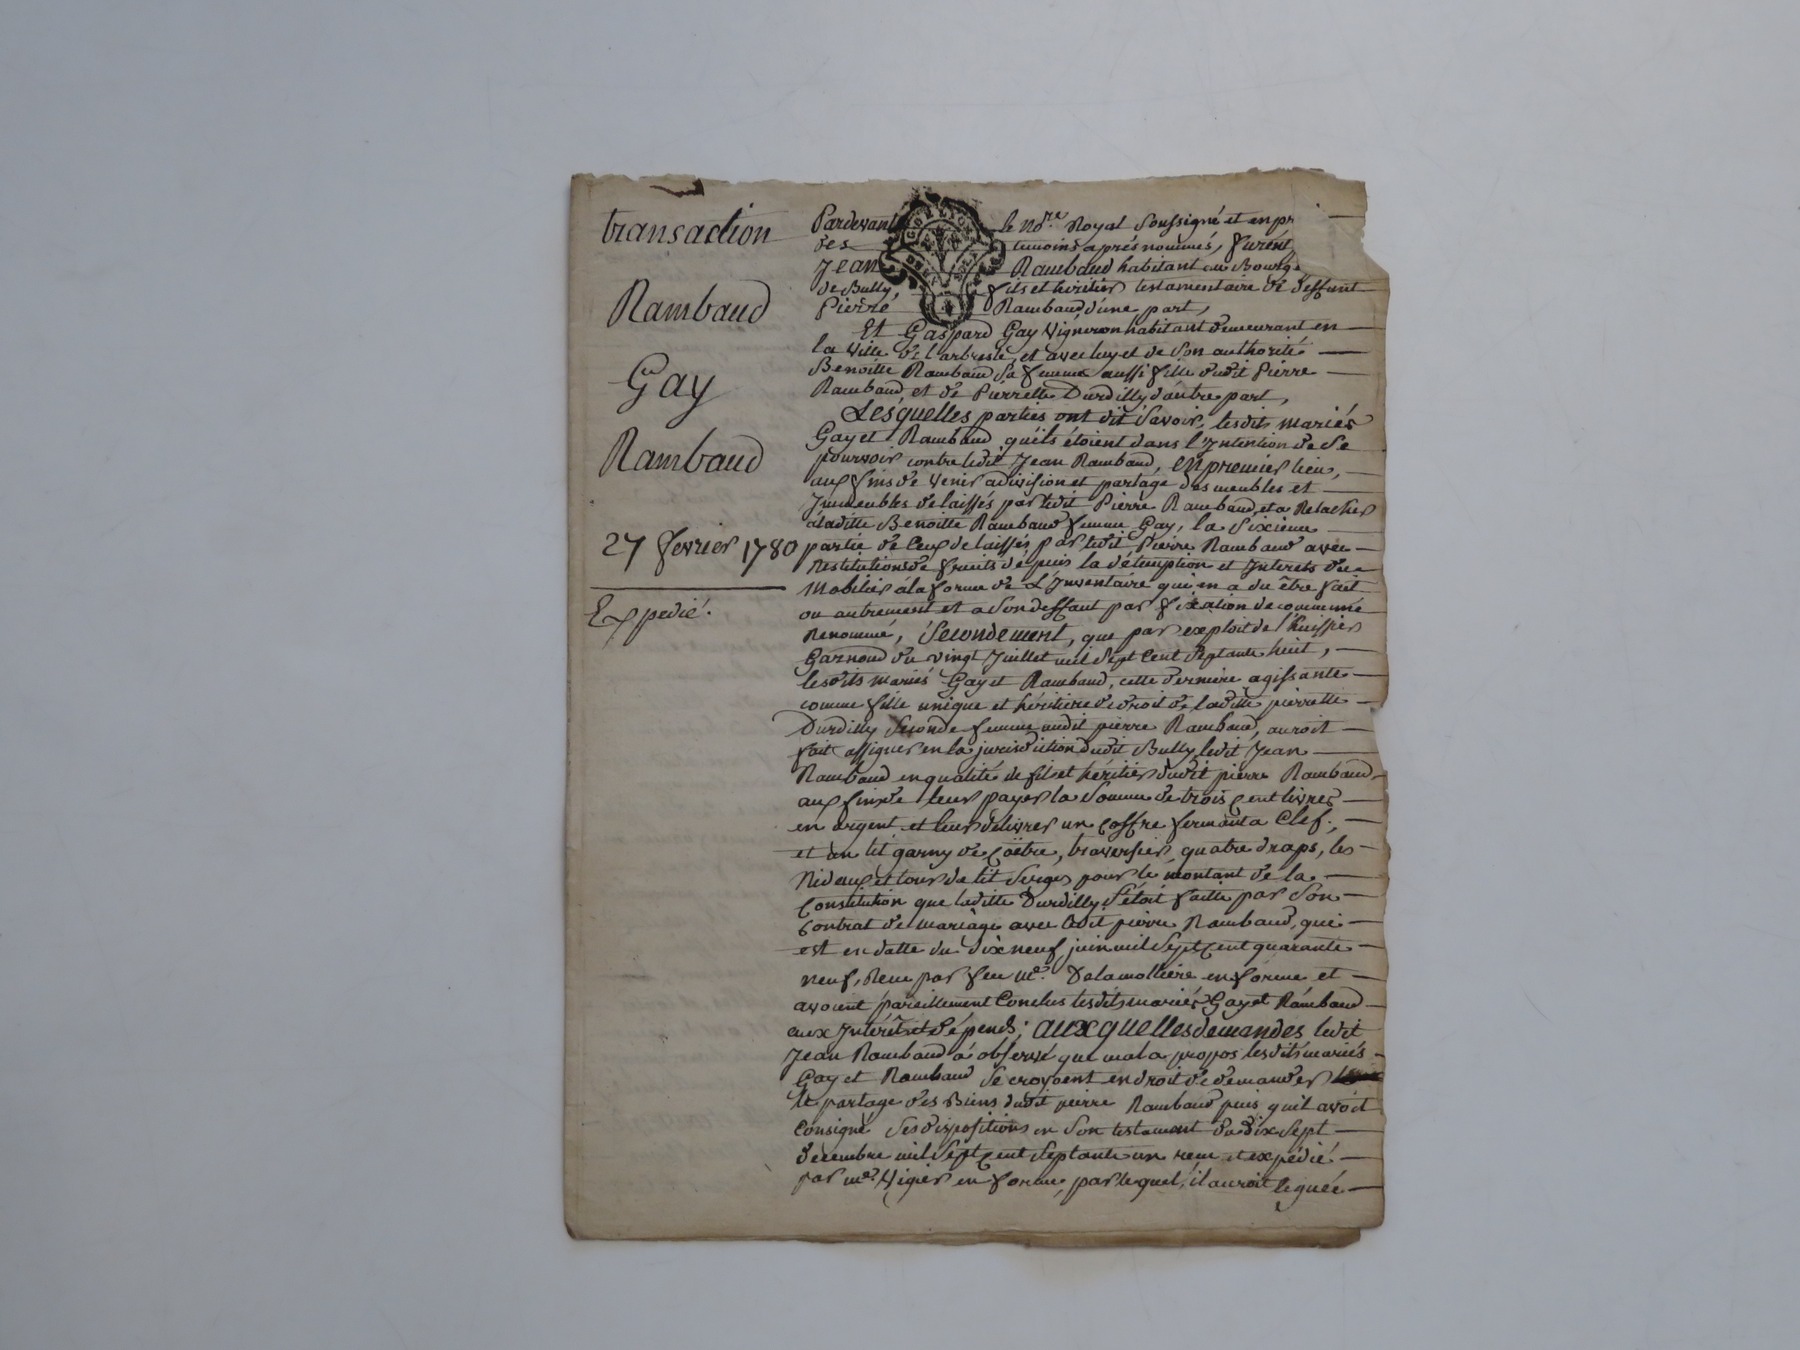 transaction
Rambaud
Gay
Rambaud
27 fevrier 1780
Expedié.
Pardevant le No.re Royal Soussigné et en
des temoins aprés nommés, furent
Jean Rambaud habitant au Bourg
de Bully, fils et heritier testamentaire de deffunt
Pierre Rambaud d'une part,
Et Gaspard Gay Vigneron habitant demeurant en
la Ville de l'arbresle, et avec luy et de Son authorité
Benoitte Rambaud Sa femme aussi fille dudit Pierre
Rambaud, et de Pierrette Durdilly d'autre part,
Lesquelles parties ont dit Savoir, lesdits mariés
Gay et Rambaud, qu'ils étoient dans l'Intention de Se
pourvoir contre ledit Jean Rambaud, en premier lieu,
aux fins de Venir a division et partage des meubles et
Immeubles delaissés par ledit Pierre Rambaud, et a Relacher
a laditte Benoitte Rambaud femme Gay, la Sixieme
partie de Ceux delaissés par ledit Pierre Rambaud avec
Restitutions de fruits depuis la détemption et Interets du
Mobilier a la forme de L'Inventaire qui en a du être fait
ou autrement et a Son deffaut par fixation de commune
Renommé, Secondement, que par exploit de l'huissier
Garnoud du vingt Juillet mil Sept Cent Septante huit,
lesdits mariés Gay et Rambaud, cette derniere agissante
comme fille unique et héritiere de droit de laditte pierrette
Durdilly Seconde femme dudit pierre Rambaud, auroit
fait assigner en la jurisdiction dudit Bully ledit Jean
Rambaud en qualité de fils et héritier dudit pierre Rambaud
aux fins de leur payer la Somme de trois Cent livres
en argent et leur délivrer un Coffre fermant a Clef,
et un lit garny de Coëtre, traversier, quatre draps, les
Rideaux et tour de lit Serges pour le montant de la
Constitution que laditte Durdilly S'étoit faitte par Son
Contrat de mariage avec ledit pierre Rambaud, qui
est en datte du dix neuf juin mil Sept Cent quarante
neuf, Reçu par feu me. Delamolliere en forme et
avoient pareillement Conclus lesdits mariés Gay et Rambaud
aux Intérêts et dépends; auxquelles demandes ledit
Jean Rambaud a observé que mal a propos lesdits mariés
Gay et Rambaud Se croyoent en droit de demander
le partage des Biens dudit pierre Rambaud puis qu'il avoit
Consigné Ses dispositions en Son testament du dix Sept
decembre mil Sept Cent Septante un reçu et expédié
par me. Vigier en forme, par lequel, il auroit legué